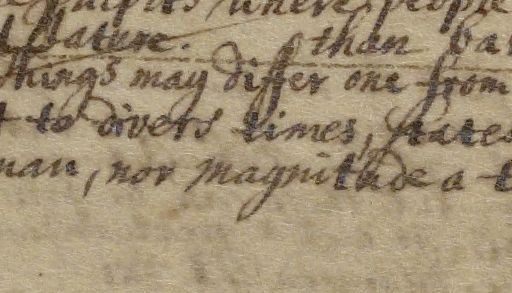 where people
nature. than
things may differ one from
to divers times, states
man, nor magnitude a